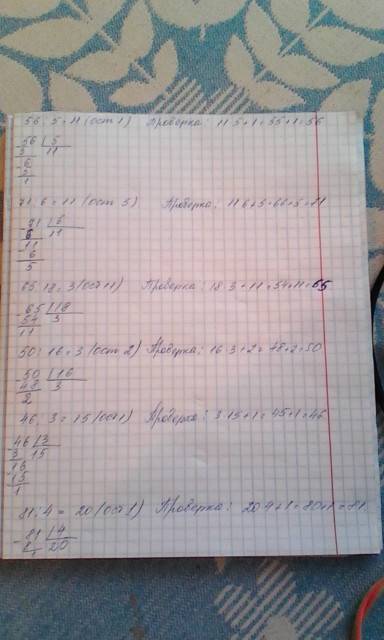 56 : 5 = 11 (ост 1) Проверка: 11·5+1=55+1=56
56 | 5
5 | 11
- 6
5
1
71 : 6 = 11 (ост 5) Проверка: 11·6+5=66+5=71
- 71 | 6
6 | 11
- 11
6
5
65 : 18 = 3 (ост 11) Проверка: 18·3+11=54+11=65
- 65 | 18
54 | 3
11
50 : 16 = 3 (ост 2) Проверка: 16·3+2=48+2=50
- 50 | 16
48 | 3
2
46 : 3 = 15 (ост 1) Проверка: 3·15+1=45+1=46
- 46 | 3
3 | 15
- 16
15
1
81 : 4 = 20 (ост 1) Проверка: 20·4+1=80+1=81
- 81 | 4
8 | 20
1